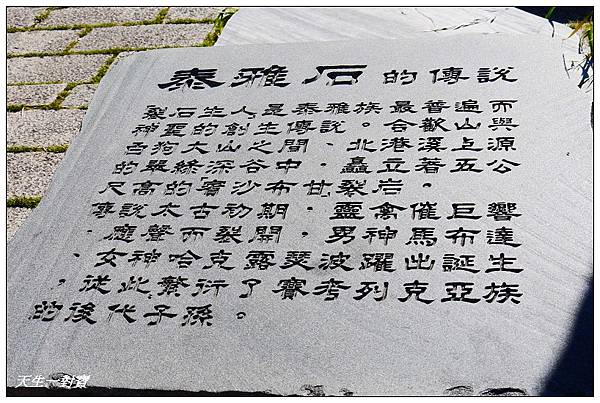 泰雅石的傳說
裂石生人是泰雅族最普遍而
神聖的創生傳說。合歡山與
白狗大山之間、北港溪上源
的翠綠深谷中,矗立著五公
尺高的賓沙布甘裂岩。
傳說太古初期,靈禽催巨響
,應聲而裂開,男神馬布達
、女神哈克露瑟波躍出誕生
,從此繁衍了賽考列克亞族
的後代子孫。
天生一對寶